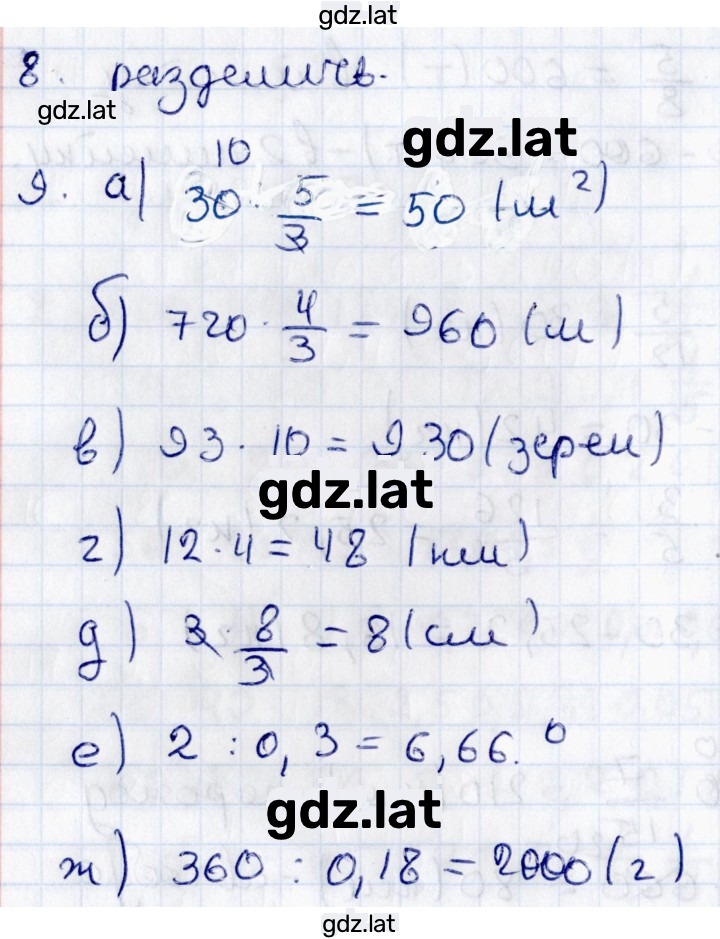 gdz.lat
8. разделить.
gdz.lat
gdz.lat
10
9. а) 30 · 5/3 = 50 (м²)
б) 720 · 4/3 = 960 (м)
в) 93 · 10 = 930 (зерен)
gdz.lat
г) 12 · 4 = 48 (км)
д) 3 · 8/3 = 8 (см)
е) 2 : 0,3 = 6,66.°
gdz.lat
ж) 360 : 0,18 = 2000 (г)
gdz.lat